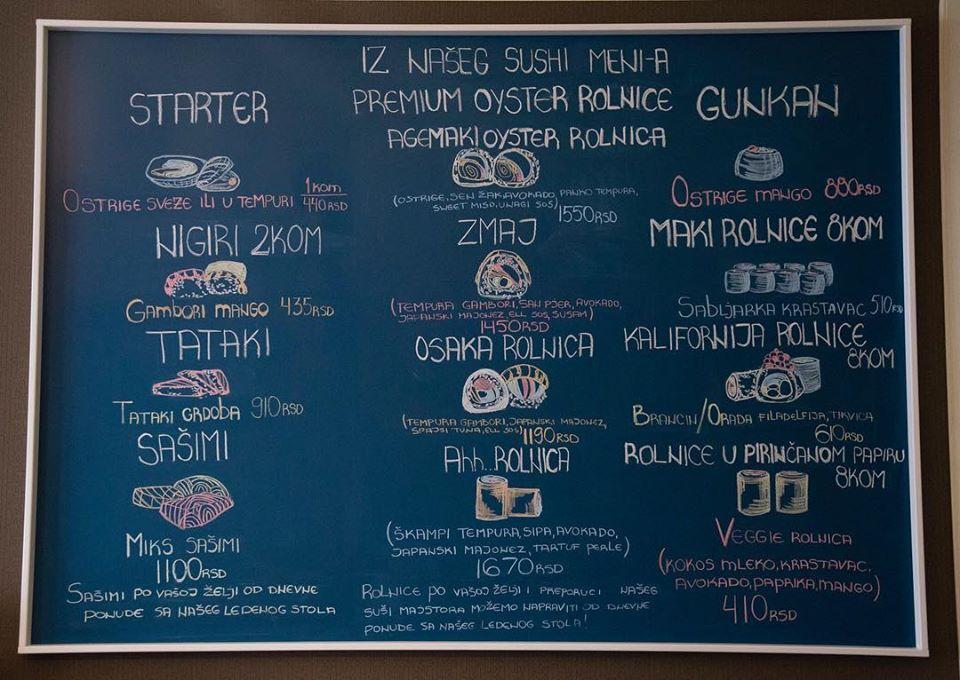 IZ NAŠEG SUSHI MENI-A
STARTER
OSTRIGE SVEZE ILI U TEMPURI 1KOM/440RSD
NIGIRI 2KOM
GAMBORI MANGO 435RSD
TATAKI
TATAKI GRDOBA 910RSD
SAŠIMI
MIKS SAŠIMI
1100RSD
SAŠIMI PO VAŠOJ ŽELJI OD DNEVNE
PONUDE SA NAŠEG LEDENOG STOLA
PREMIUM OYSTER ROLNICE
AGEMAKI OYSTER ROLNICA
(OSTRIGE, SEN ŽAK AVOKADO, PANKO TEMPURA,
SWEET MISO, UNAGI SOS) 1550RSD
ZMAJ
(TEMPURA GAMBORI, SAN PJER, AVOKADO,
JAPANSKI MAJONEZ, ELL SOS, SUSAM)
1450RSD
OSAKA ROLNICA
(TEMPURA GAMBORI, JAPANSKI MAJONEZ,
SPAJSI TUNA, ELL SOS) 1190RSD
AHH.. ROLNICA
(ŠKAMPI TEMPURA, SIPA, AVOKADO,
JAPANSKI MAJONEZ, TARTUF PERLE)
1670RSD
ROLNICE PO VAŠOJ ŽELJI I PREPORUCI NAŠEG
SUŠI MAJSTORA MOŽEMO NAPRAVITI OD DNEVNE
PONUDE SA NAŠEG LEDENOG STOLA!
GUNKAN
OSTRIGE MANGO 880RSD
MAKI ROLNICE 8KOM
SABLJARKA KRASTAVAC 510RSD
KALIFORNIJA ROLNICE
8KOM
BRANCIN/ORADA FILADELFIJA, TIKVICA
610RSD
ROLNICE U PIRINČANOM PAPIRU
8KOM
VEGGIE ROLNICA
(KOKOS MLEKO, KRASTAVAC,
AVOKADO, PAPRIKA, MANGO)
410RSD